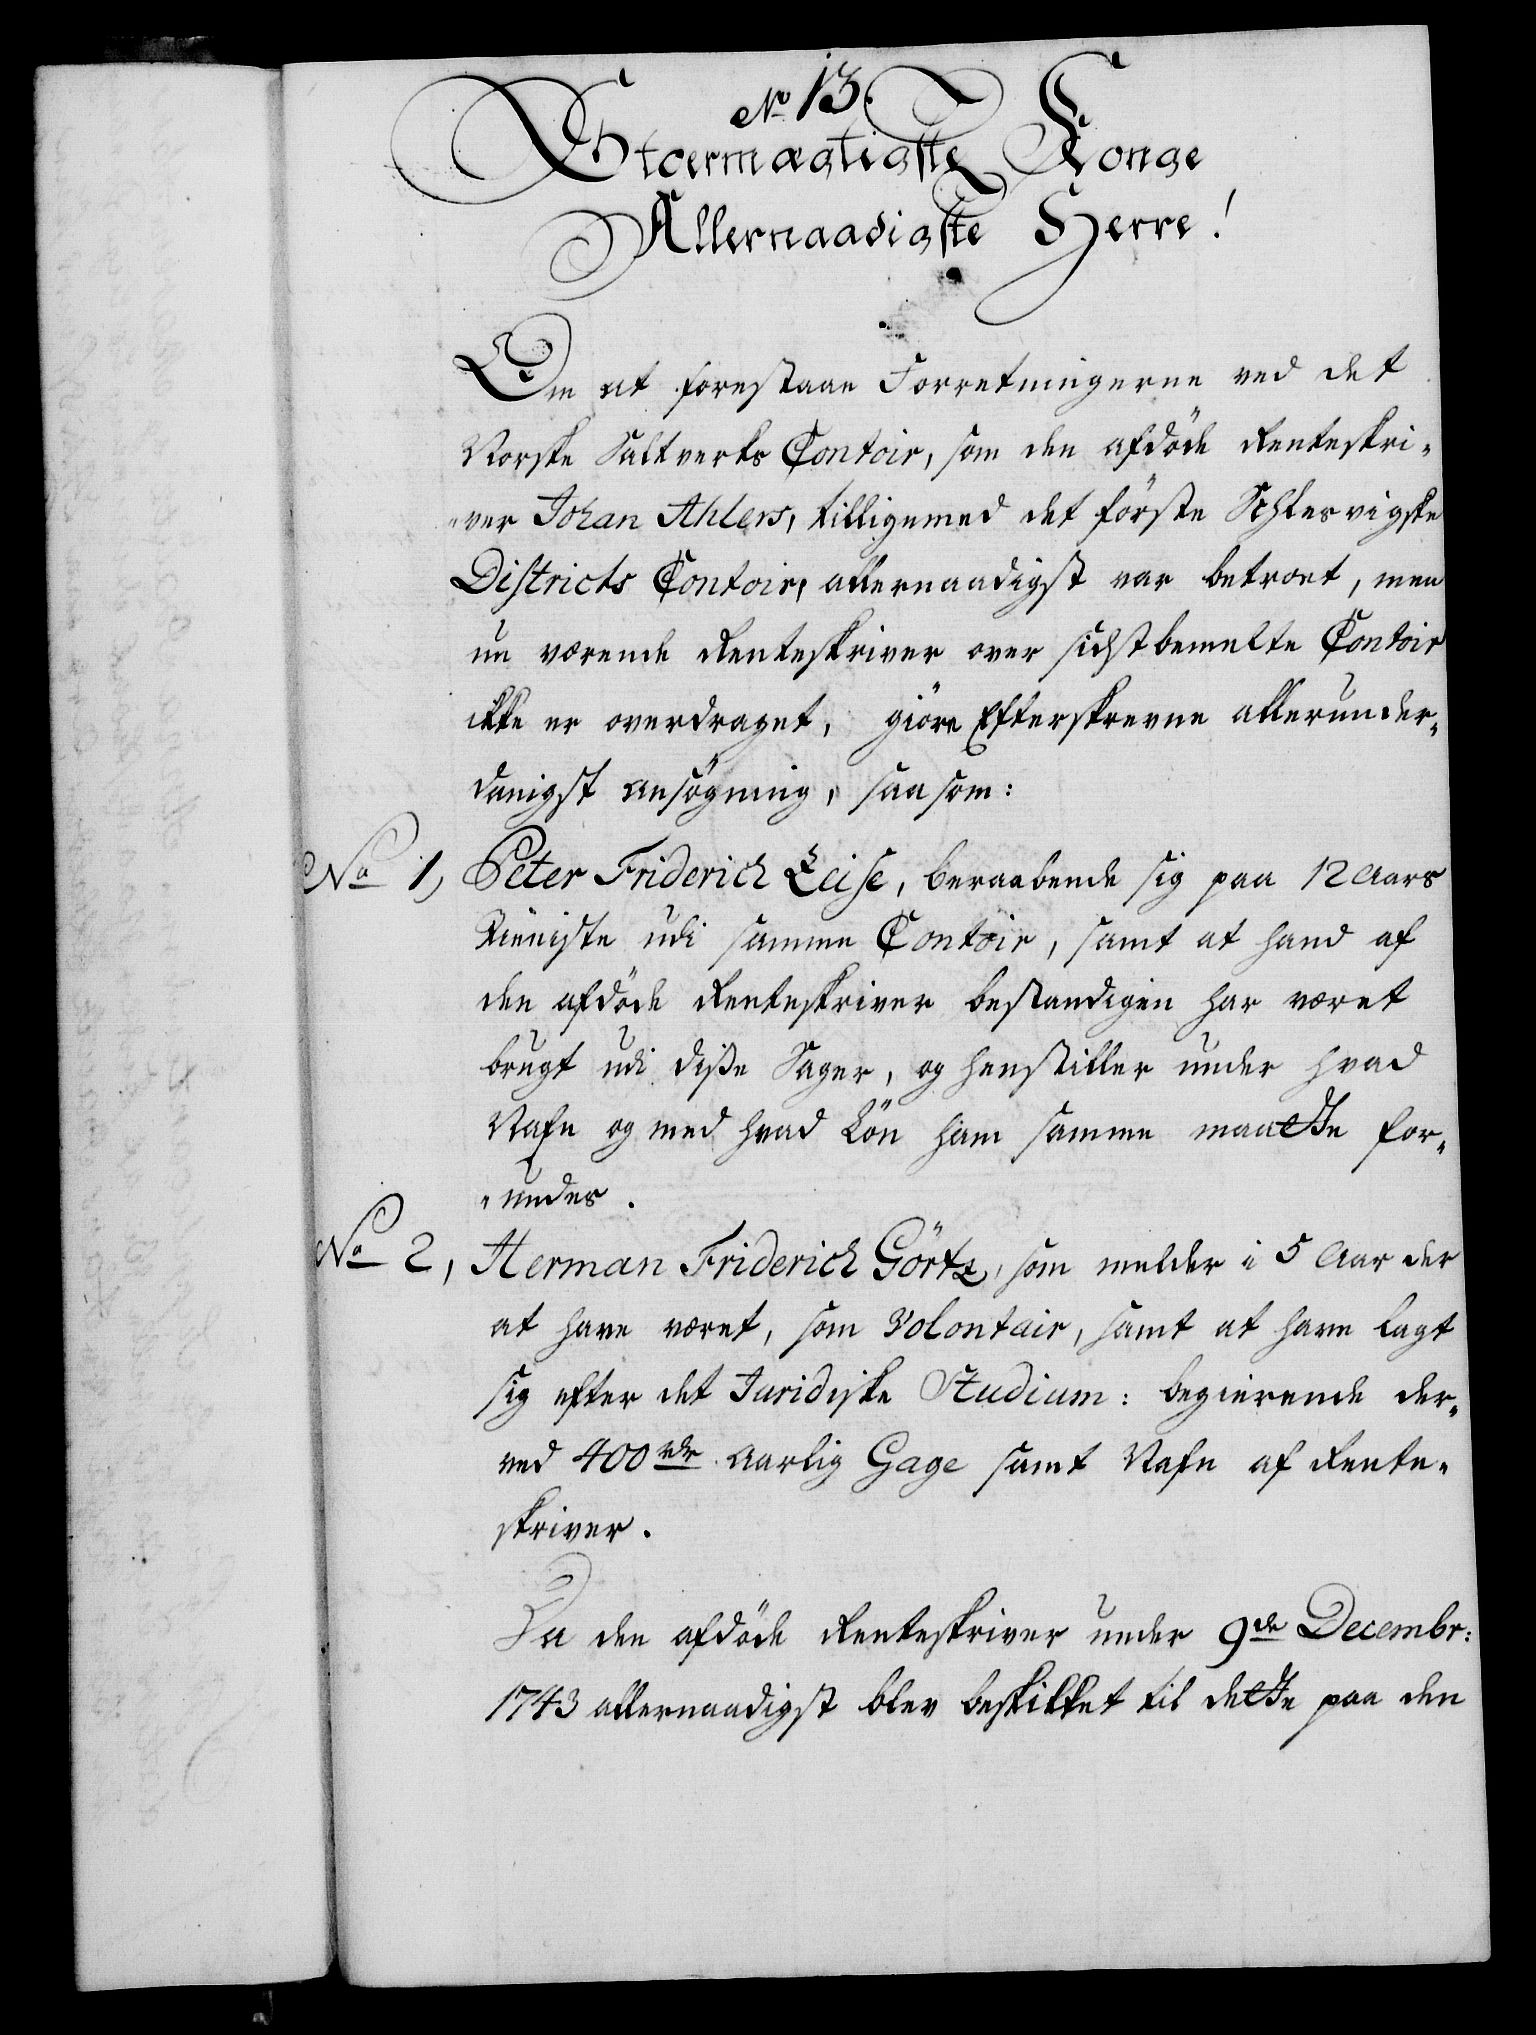 No 13.
Stormægtigste Konge
Allernaadigste Herre!
Om at forestaae Forretningerne ved det
Norske Saltverks Contoir, som den afdöde Renteskri-
-ver Johan Ahlers, tilligemed det förste Schlesvigske
Districts Contoir, allernaadigst var betroet, men
nu værende Renteskriver over sidstbemelte Contoir
ikke er overdraget, giöre Efterskrevne allerunder-
danigst Ansögning, saasom:
No 1, Peter Friderich Leise, beraabende sig paa 12 Aars
Tieniste udi samme Contoir, samt at hand af
den afdöde Renteskriver bestandigen har været
brugt udi diße Sager, og henstiller under hvad
Nafn og med hvad Lön ham samme maatte for-
-undes.
No 2, Herman Friderich Görtz, som melder i 5 Aar der
at have været, som Volontair, samt at have lagt
sig efter det Juridiske Studium: begierende der-
ved 400 rdr Aarlig Gage samt Nafn af Rente-
skriver.
Da den afdöde Renteskriver under 9de Decembr:
1743 allernaadigst blev beskikket til dette paa den